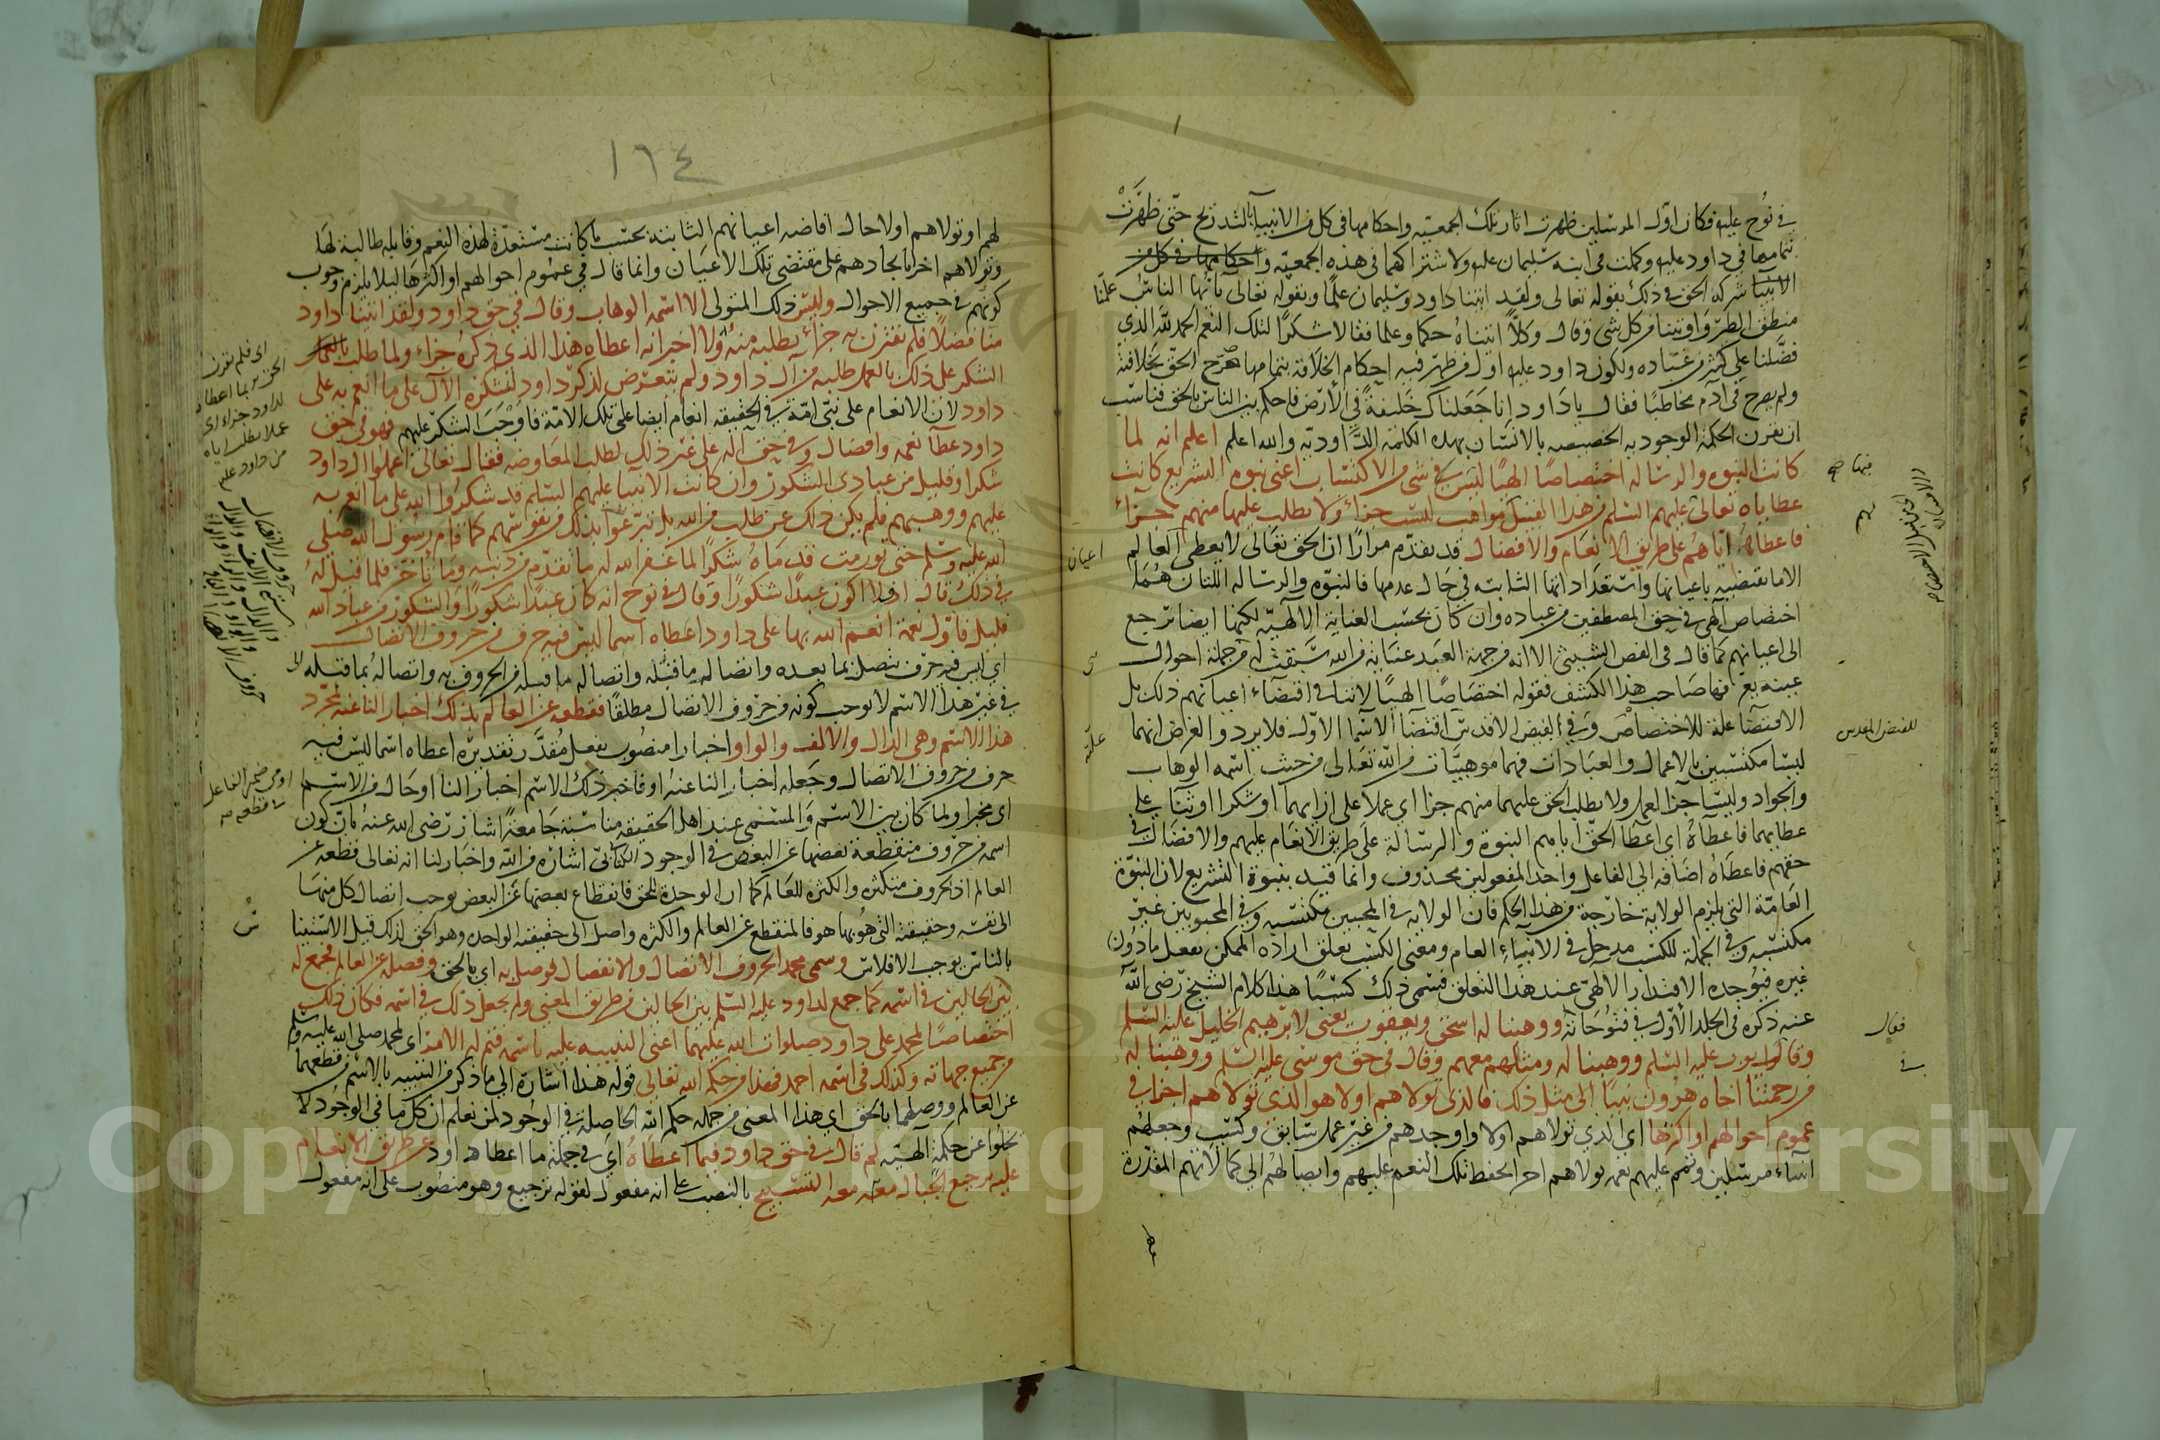 في نوح عليه فكان اول المرسلين ظهرت اثار تلك الجمعية واحكامها في كل من الانبيآء بالتدريج حتى ظهرت
بتمامها في داود عليه وكملت في ابنه سليمان عليه ولاشتراكهما في هذه الجمعية واحكامها في كل من
الانبيآ شركه الحق في ذلك بقوله تعالى ولقد اتينا داود وسليمان علما وبقوله تعالى يا ايها الناس علمنا
منطق الطير واوتينا من كل شى وقال وكلا اتيناه حكما وعلما فقالا شكرا لتلك النعم الحمد لله الذي
فضلنا على كثير من عباده ولكون داود عليه اول من ظهر فيه احكام الخلافة بتمامها صرح الحق بخلافته
ولم يصرح في ادم مخاطبا فقال يا داود انا جعلناك خليفة في الأرض فاحكم بين الناس بالحق فناسب
ان يقرن الحكمة الوجوديه الخصيصه بالانسان بهذه الكلمة الداوديه والله اعلم اعلم انه لما
كانت النبوه والرساله اختصاصا الهيا ليس في شى من الاكتساب اعني نبوه التشريع كانت
عطاياه تعالى عليهم السلم من هذا القبيل مواهب ليست جزاء ولا يطلب عليها منهم جزاء
فاعطاؤه اياهم على طريق الانعام والافضال قد تقدم مرارا ان الحق تعالى لا يعطي العالم
الا ما يقتضيه باعيانها واستعداداتها الثابته في حال عدمها فالنبوه والرساله اللتان هما
اختصاص الهي في حق المصطفين من عباده وان كان بحسب العناية الالهية لكنها ايضا ترجع
الى اعيانهم كما قال في الفص الشيثي الا انه من جهة العبد عناية من الله سبقت له من جملة احوال
عينه يعرفها صاحب هذا الكشف فقوله اختصاصا الهيا لا ينافي اقتضاء اعيانهم ذلك بل
الاقتضآ علة للاختصاص وفي الفيض الاقدس اقتضآ الاسمآ الاول فلا يرد والغرض انهما
ليستا مكتسبين بالاعمال والعبادات فهما موهبتان من الله تعالى من حيث اسمه الوهاب
والجواد وليستا جزآ العمل ولا يطلب الحق عليهما منهم جزآ اي عملا على ازايهما او شكرا او ثنآ على
عطايهما فاعطآؤه اي اعطآ الحق اياهم النبوة والرسالة على طريق الانعام عليهم والافضال في
حقهم فاعطآؤه اضافه الى الفاعل واحد المفعولين محذوف وانما قيد بنبوة التشريع لان النبوة
العامة التي يلزم الولاية خارجة من هذا الحكم فان الولاية في المحبين مكتسبه وفي المحبوبين غير
مكتسبه وفي الجملة للكسب مدخل في الانبياء العام ومعنى الكسب تعلق اراده الممكن بفعل ما دون
غيره فيوجده الاقتدار الالهي عند هذا التعلق فسمي ذلك كسبا هذا كلام الشيخ رضي الله
عنه ذكره في المجلد الاول في فتوحاته ووهبنا له اسحق ويعقوب يعني لابرهيم الخليل عليه السلم
وقال ايوب عليه السلم ووهبنا له ومثلهم معهم وقال في حق موسى عليه السلم ووهبنا له
من رحمتنا اخاه هرون نبيا الى مثل ذلك فالذي تولاهم اولا هو الذي تولاهم اخرا في
عموم احوالهم او اكثرها اي الذي تولاهم اولا واوجدهم من غير عمل سابق وكسب وجعلهم
انبيآء مرسلين وتمم عليهم نعمه تولاهم اخرا لحفظ تلك النعم عليهم وايصالهم الى كمالاتهم المقدرة
فيها صح
للفيض المقدس
فقال
اعيان
علته
لهم
١٦٤
لهم او تولاهم اولا حال افاضه اعيانهم الثابته بحسب ما كانت مستعدة لهذه النعم وقابله طالبة لها
وتولاهم اخرا بايجادهم على مقتضى تلك الاعيان وانما قال في عموم احوالهم او اكثرها ليلا يلزم وجوب
كونهم في جميع الاحوال وليس ذلك المتولي الا اسمه الوهاب وقال في حق داود ولقد اتينا داود
منا فضلا فلم يقرن به جزآ يطلبه منه ولا اخبر انه اعطاه هذا الذي ذكره جزاء ولما طلب
الشكر على ذلك بالعمل طلبه من آل داود ولم يتعرض لذكر داود ليشكره الآل على ما انعم به على
داود لان الانعام على نبي امة في الحقيقه انعام ايضا على تلك الامة فاوجب الشكر عليهم فهو في حق
داود عطآ نعمه وافضال وفي حق آله على غير ذلك لطلب المعاوضه فقال تعالى اعملوا ال داود
شكرا وقليل من عبادي الشكور وان كانت الانبيا عليهم السلم قد شكروا الله على ما انعم به
عليهم ووهبهم فلم يكن ذلك عن طلب من الله بل تبرعوا بذلك من نفوسهم كما قام رسول الله صلى
الله عليه وسلم حتى تورمت قدماه شكرا لما غفر الله له ما تقدم من ذنبه وما تأخر فلما قيل له
في ذلك قال افلا اكون عبدا شكورا وقال في نوح انه كان عبدا شكورا والشكور من عباد الله
قليل فاول نعمة انعم الله بها على داود اعطاه اسما ليس فيه حرف من حروف الاتصال
اي ليس فيه حرف يتصل بما بعده واتصاله بما قبله واتصاله ما قبله من الحروف به واتصاله بما قبله
في غير هذا الاسم لا يوجب كونه من حروف الاتصال مطلقا فقطعه عن العالم بذلك اخبارا لنا عنه بمجرد
هذا الاسم وهي الدال والالف والواو اخبارا منصوب بفعل مقدر تقديره اعطاه اسما ليس فيه
حرف من حروف الاتصال وجعله اخبارا لنا عنه او فاخبر ذلك الاسم اخبارا لنا او حال من الاسم
اي مخبرا ولما كان بين الاسم والمسمى عند اهل الحقيقه مناسبة جامعة اشار رضى الله عنه بان كون
اسمه من حروف منقطعة بعضها عن البعض في الوجود الكتابي اشارة من الله واخبار لنا انه تعالى قطعه عن
العالم اذ الحروف متكثره والكثره للعالم كما ان الوحدة للحق فانقطاع بعضها عن البعض يوجب اتصال كل منها
الى نفسه وحقيقته التي هو بها هو فالمنقطع عن العالم والكثره واصل الى حقيقته الواحده وهو الحق لذلك قيل الاستيناس
بالناس يوجب الافلاس وسمى محمدا بحروف الاتصال والانفصال فوصل به اي بالحق وفصله عن العالم فجمع له
بين الحالين في اسمه كما جمع لداود عليه السلم بين الحالين من طريق المعنى ولم يجعل ذلك في اسمه فكان ذلك
اختصاصا لمحمد على داود صلوات الله عليهما اعني التنبيه عليه باسمه فتم له الامر اي لمحمد صلى الله عليه وسلم
من جميع جهاته وكذلك في اسمه احمد فهذا من حكمة الله تعالى قوله هذا اشارة الى ما ذكر من التنبيه بالاسم من قطعهما
عن العالم ووصلهما بالحق اي هذا المعنى من جمله حكم الله الحاصله في الوجود لمن يعلم ان كل ما في الوجود لا
يخلوا عن حكمة الهية ثم قال في حق داود فيما اعطاه اي في جملة ما اعطا داود عن طريق الانعام
عليه ترجيع الجبال معه التسبيح بالنصب على انه مفعول لقوله ترجيع وهو منصوب على انه مفعول
اي فلم يقرن
الحق بما اعطا
لداود جزاء اي
عملا يطلب اياه
من داود عليه